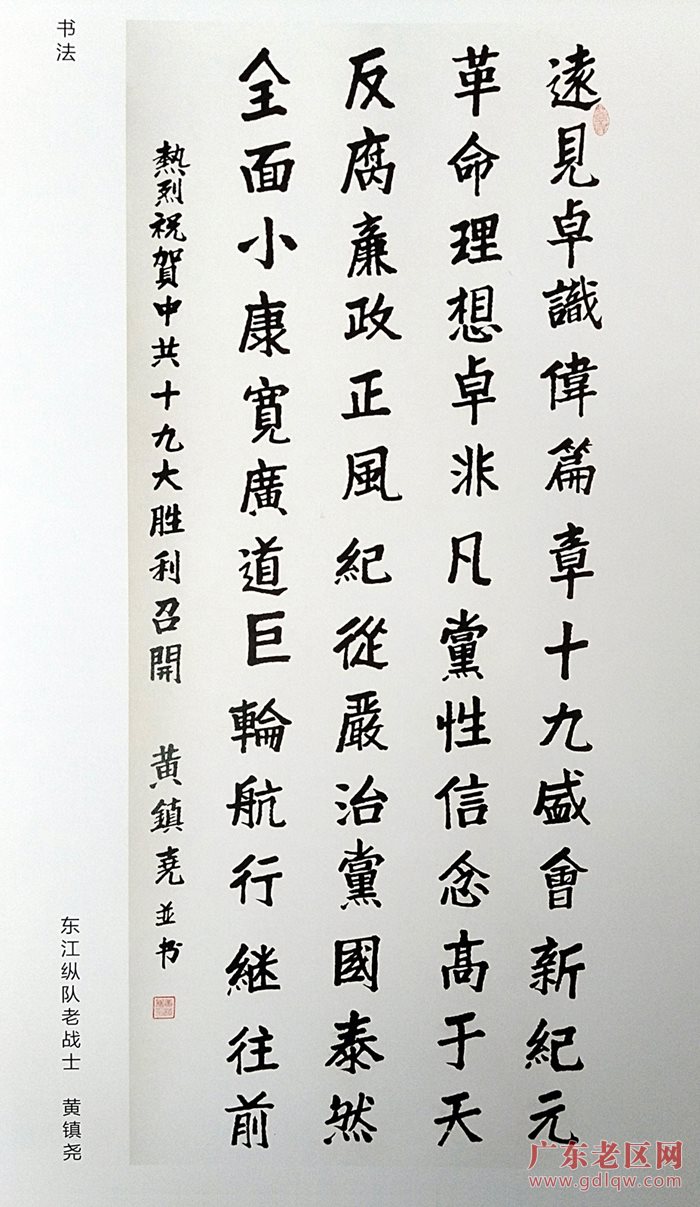 书法
遠見卓識偉篇章十九盛會新紀元
革命理想卓非凡黨性信念高于天
反腐廉政正風紀從嚴治黨國泰然
全面小康寬廣道巨輪航行继往前
熱烈祝賀中共十九大胜利召開 黄鎮堯並书
东江纵队老战士 黄镇尧
广东老区网
www.gdlqw.com